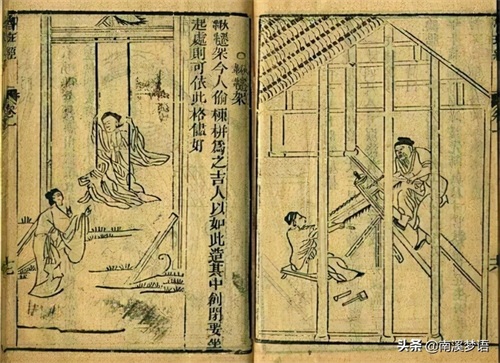 ○鞦韆架
鞦韆架今人偷棟栟爲之吉人以如此造其中創閒要坐
起處則可依此格儘好
班經 卷一 七
头条 @南溪梦语